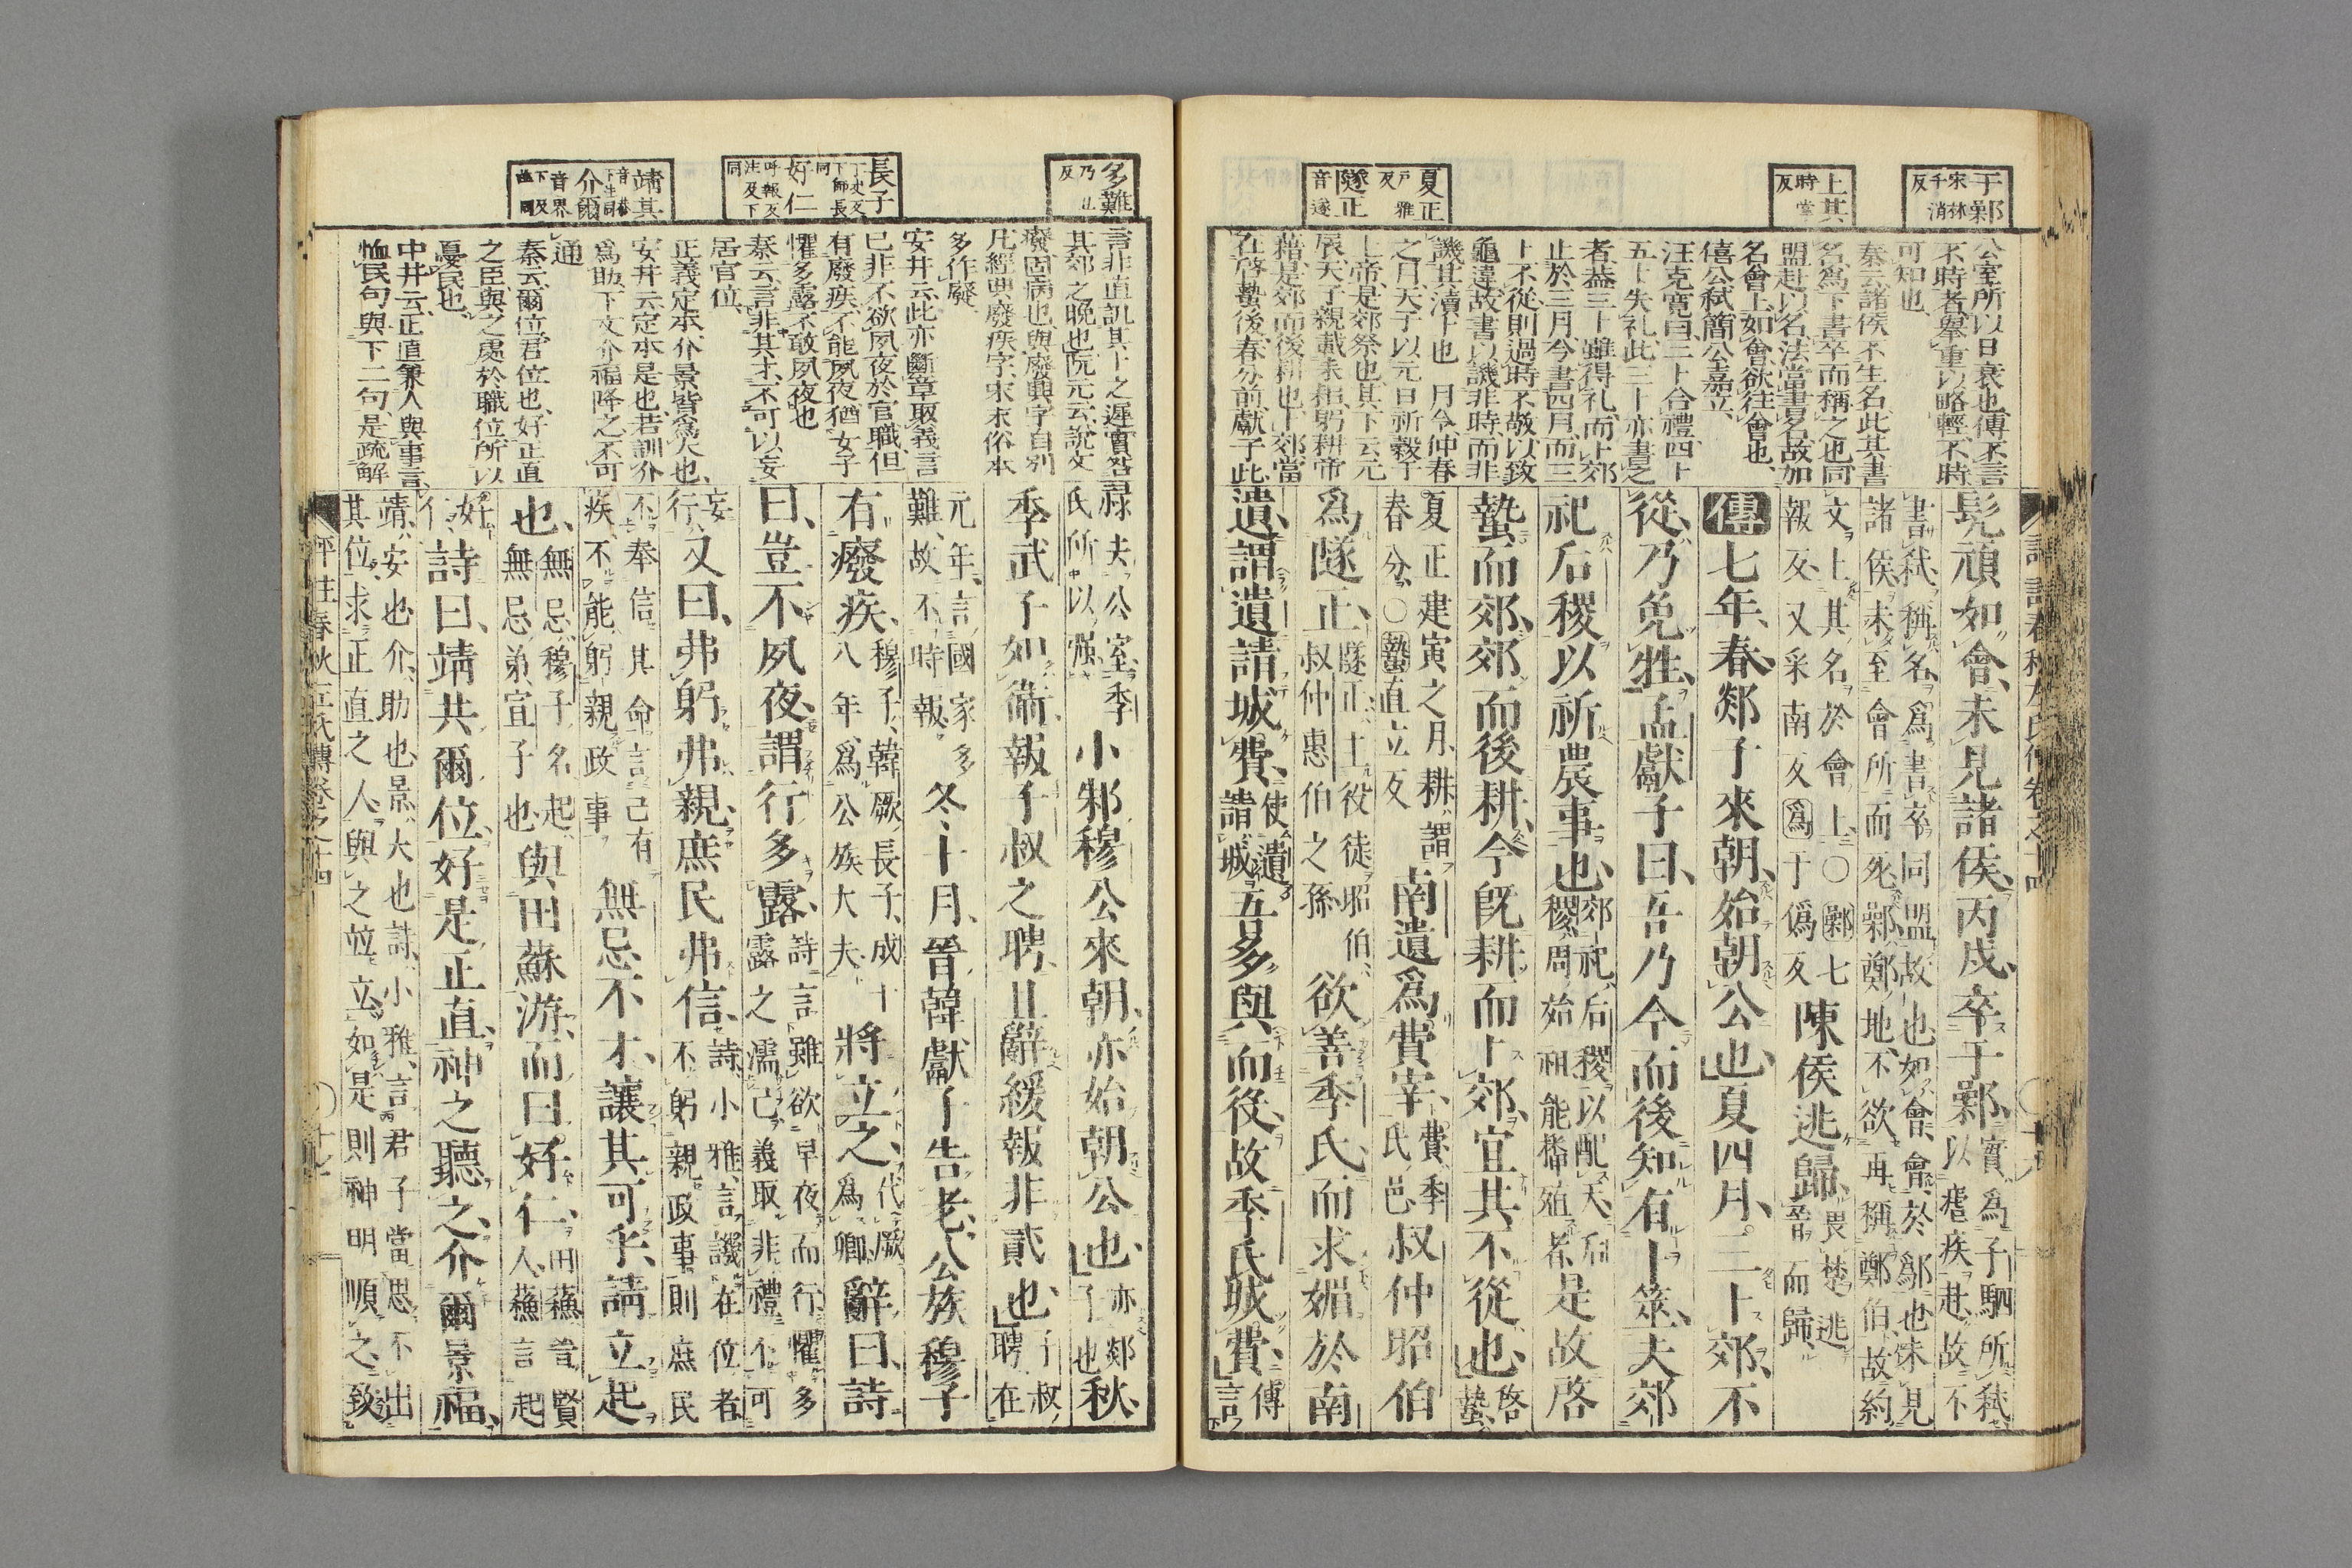 于鄬
宋林
千消
反
上其
時掌
反
夏正
戸雅
反
隧正
音遂
公室所以日衰也傳不言
不時者舉重以略輕不時
可知也
秦云諸侯不生名此其書
名爲下書卒而稱之也同
盟赴以名法當書名故如
名會上如會欲往會也
僖公弑簡公嘉立
汪克寛曰三卜合禮四卜
五卜失礼此三卜亦書之
者蓋三卜雖得礼而卜郊
止於三月今書四月而三
卜不從則過時不敬以致
龜違故書以譏非時而非
譏其瀆卜也 月令仲春
之月天子以元日祈穀于
上帝是郊祭也其下云元
辰天子親載耒耜躬耕帝
藉是郊而後耕也卜郊當
在啓蟄後春分前獻子此
髠頑如會未見諸侯丙戌卒于鄬
實爲子駟所弑
以瘧疾赴故不
書弑稱名爲書卒同盟故也如會會於鄬也未見
諸侯未至會所而死鄬鄭地不欲再稱鄭伯故約
文上其名於會上○鄬七
報反又采南反爲于僞反
陳侯逃歸
畏楚逃
晉而歸
傳七年春郯子來朝始朝公也夏四月三卜郊不
從乃免牲孟獻子曰吾乃今而後知有卜筮夫郊
祀后稷以祈農事也
郊祀后稷以配天后
稷周始祖能播殖者
是故啓
蟄而郊郊而後耕今既耕而卜郊宜其不從也
啓
蟄
夏正建寅之月耕謂
春分○蟄直立反
南遺爲費宰
費季
氏邑
叔仲昭伯
爲隧正
隧正主役徒昭伯
叔仲惠伯之孫
欲善季氏而求媚於南
遺謂遺請城費
使遺
請城
吾多與而役故季氏城費
傳
言
多難
乃旦
反
長子
丁丈反
下師長
同
好仁
呼報反
注及下
同
靖其
介爾
音界
下及
言非直譏其卜之遲實咎
其郊之晩也阮元云說文
癈固病也與廢興字自別
凡經典廢疾字宋末俗本
多作廢
安井云此亦斷章取義言
已非不欲夙夜於官職但
有廢疾不能夙夜猶女子
懼多露不敢夙夜也
秦云言非其才不可以妄
居官位
正義定本介景皆爲大也
安井云定本是也若訓介
爲助下文介福降之不可
通
秦云爾位君位也好正直
之臣與之處於職位所以
憂民也
中井云正直兼人與事言
恤民句與下二句是疏解
祿夫公室季
氏所以強
小邾穆公來朝亦始朝公也
亦郯
子也
秋
季武子如衞報子叔之聘且辭緩報非貳也
子叔
聘在
元年言國家多
難故不時報
冬十月晉韓獻子告老公族穆子
右癈疾
穆子韓厥長子成十
八年爲公族大夫
將立之
代厥
爲卿
辭曰詩
曰豈不夙夜謂行多露
詩言雖欲早夜而行懼多
露之濡己義取非禮不可
妄
行
又曰弗躬弗親庶民弗信
詩小雅言譏在位者
不躬親政事則庶民
不奉信其命言己有
疾不能躬親政事
無忌不才讓其可乎請立起
也
無忌穆子名起
無忌弟宣子也
與田蘇游而曰好仁
田蘇晉賢
人蘇言起
好
仁
詩曰靖共爾位好是正直神之聽之介爾景福
靖安也介助也景大也詩小雅言君子當思不出
其位求正直之人與之竝立如是則神明順之致
評註春秋左氏傳卷之十四